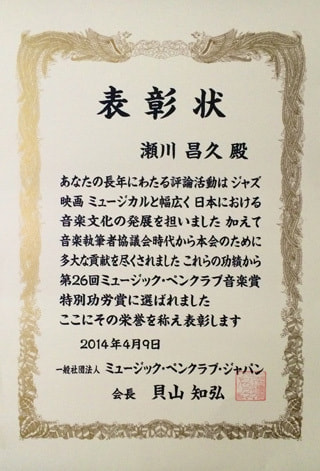 表彰状
瀬川 昌久 殿
あなたの長年にわたる評論活動は ジャズ
映画 ミュージカルと幅広く 日本における
音楽文化の発展を担いました 加えて
音楽執筆者協議会時代から本会のために
多大な貢献を尽くされました これらの功績から
第26回ミュージック・ペンクラブ音楽賞
特別功労賞に選ばれました
ここにその栄誉を称え表彰します
2014年4月9日
一般社団法人 ミュージック・ペンクラブ・ジャパン
会長 貝山 知弘